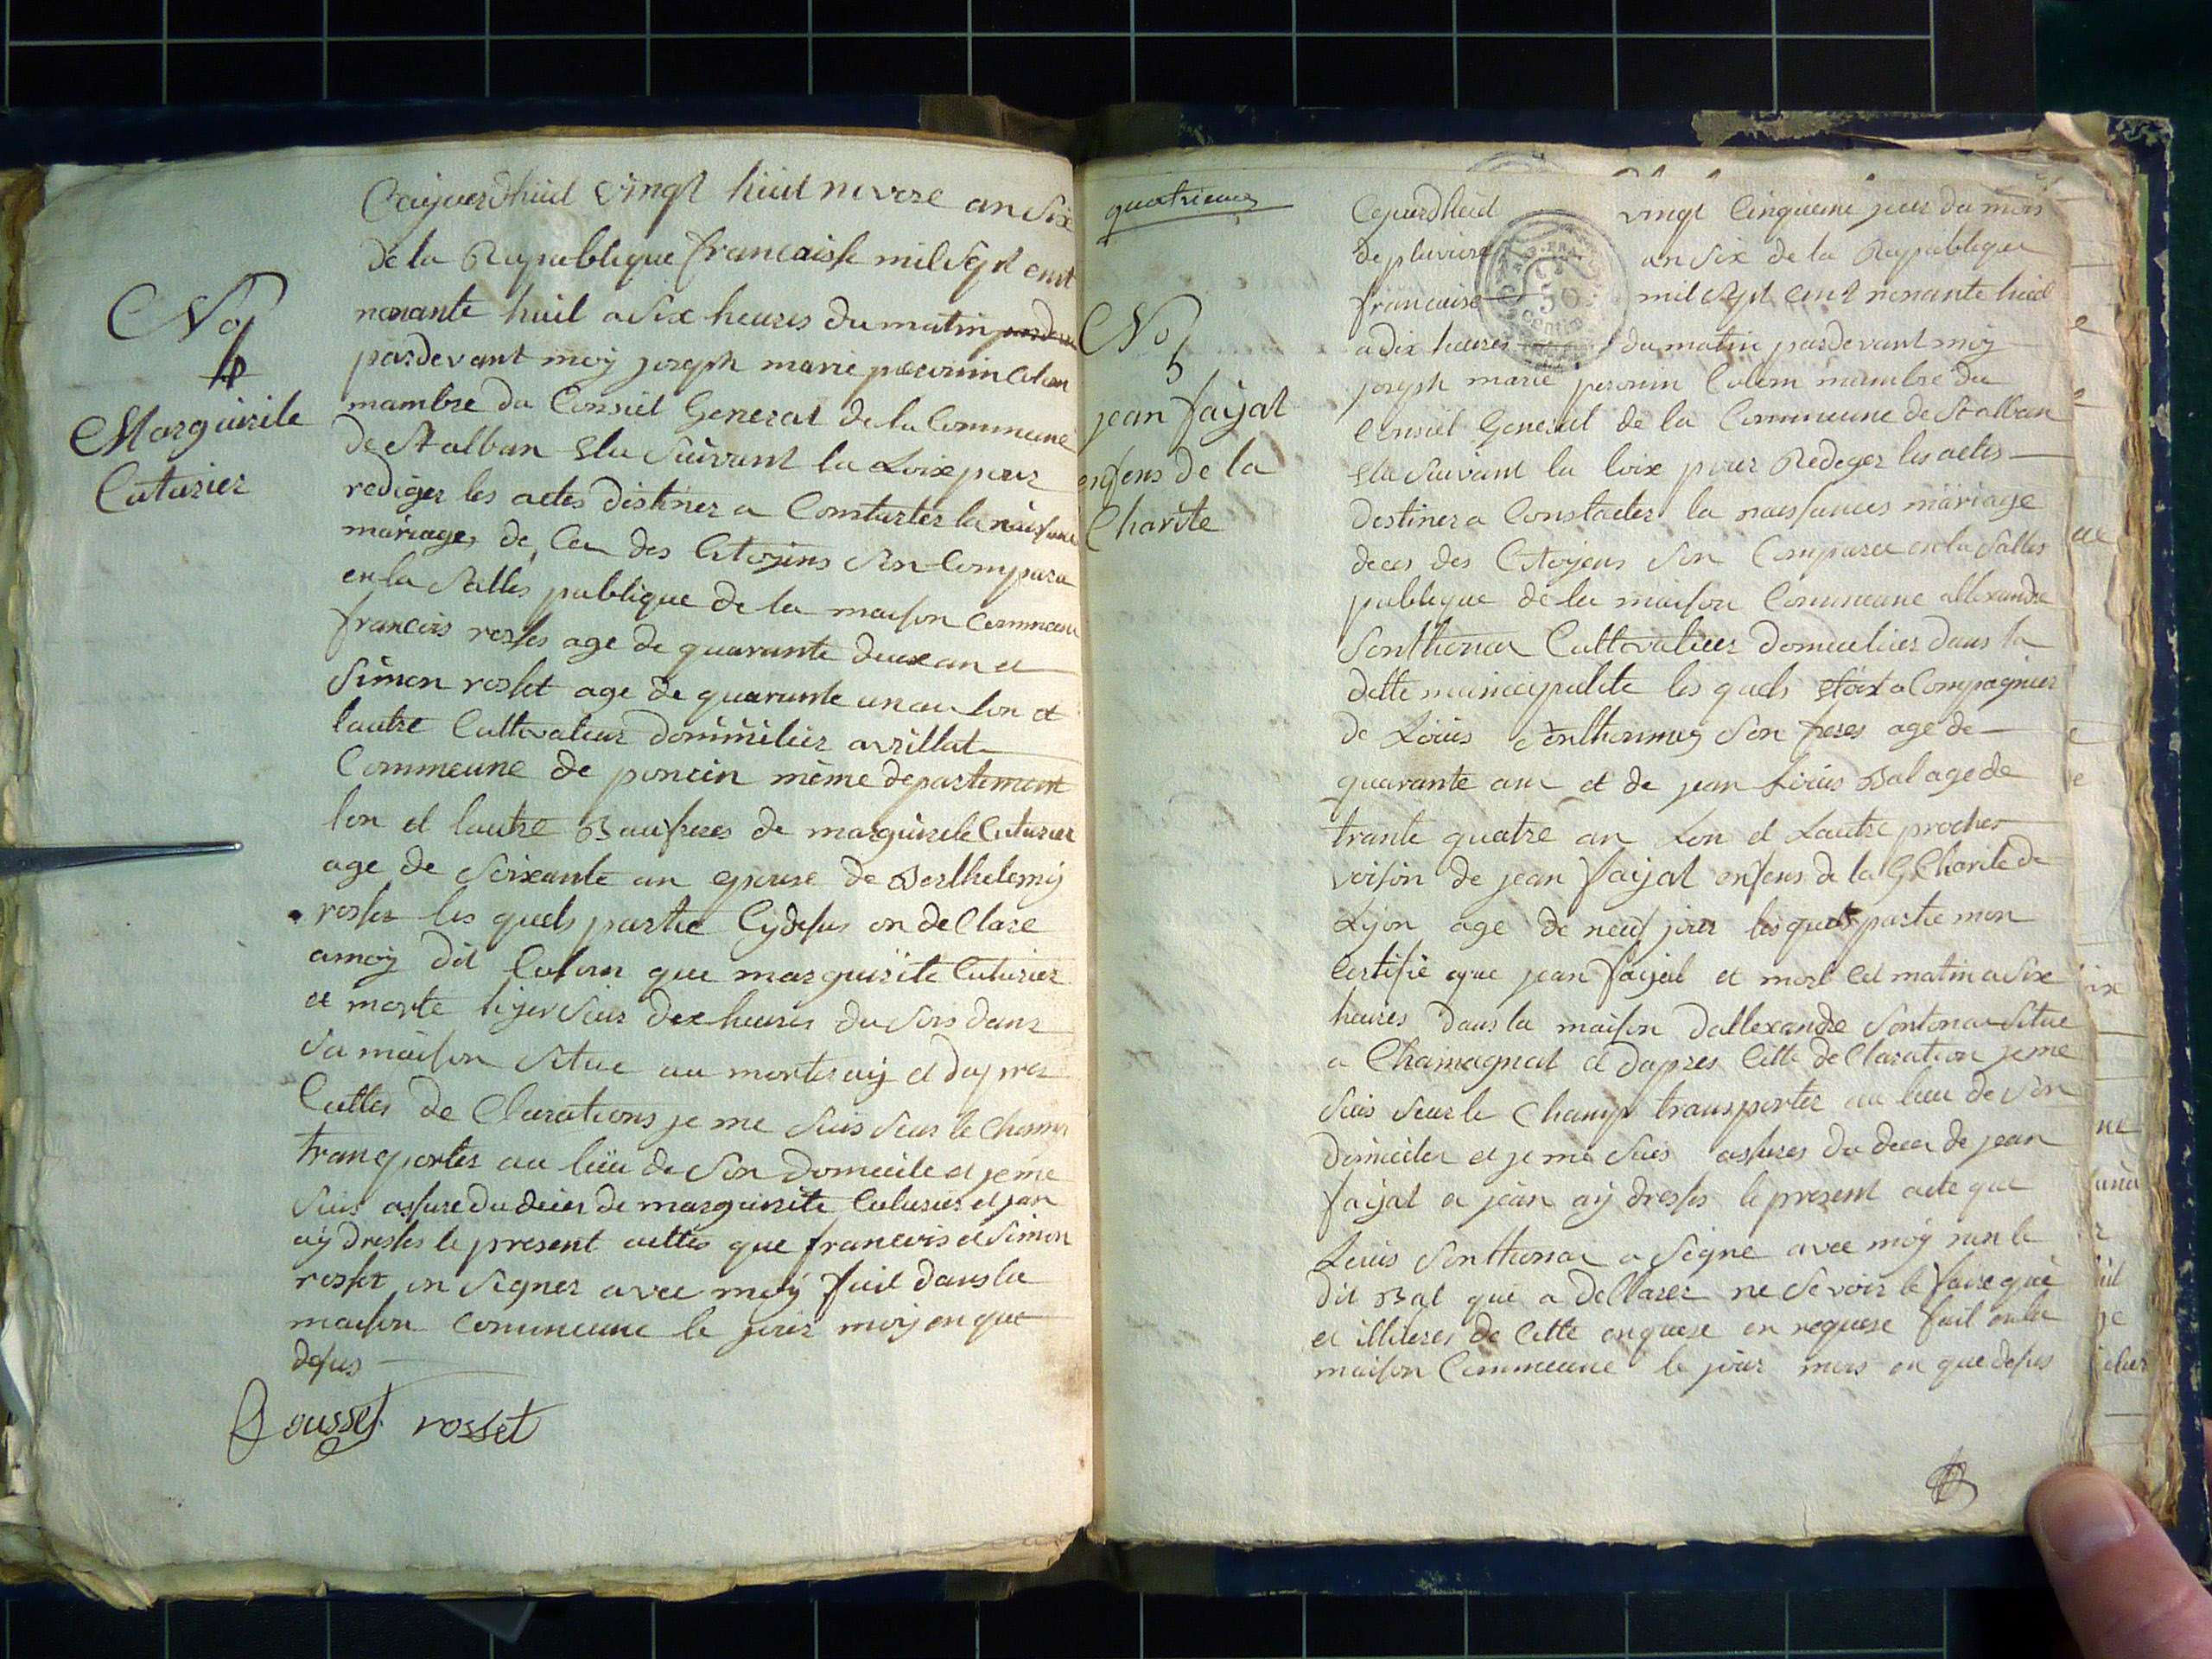 No
4
Marguirite
Cuturier
Cejourdhuit vingt huit nivose an Six
de la Republique francaisse mil Sept cent
nonante huit a Six heures du matin
pardevant moy joseph marie perronin Colom
mambre du Consiel General de la Commeune
de St alban Elu Suivant la Loix pour
rediger les actes distiner a Constater la naissance
mariages de Ces des Citoyens Son Compara
en la Salles publique de la maison Commeune
francois rosses age de quarante deux an et
Simon rosset age de quarante un an Lon et
lautre Cultivateur dommilier avrillat
Commeune de poncin même departement
lon et lautre Baufreres de marguirite Cuturier
age de Soixante an epouse de Berthelemy
rosset les quels partie Cydesus on declare
a moy dit Colom que marguirite Cuturier
et morte hyer Seur dix heures du Soir dans
Sa maison Situe au morteray et dapres
Cettes de Clarations je me Suis Seur le Champ
transportes au lieu de Son domecile et je me
Suis assure du deces de marguirite Cuturier et jan
ay dresses le present acttes que francois et Simon
rosset on Signer avec moy fait dans la
maison Commeune le jour moy an que
desus
Rousset rosset
quatrieme
No
5
jean fayat
enfens de la
Charite
Cejourdhuit vingt Cinquieme jour du mois
de pluviose an Six de la Republique
francaise mil Sept Cent nonante huit
a dix heures du matin pardevant moy
joseph marie peronin Colom mambre du
Consiel General de la Commeune de St alban
Elu Suivant la loix pour Rediger les actes
destiner a Constater la naissances mariage
deces des Citoyens Son Comparu en la Salles
publique de la maison Commeune allexandre
Sonthonax Cultivateur domecilier dans la
ditte municipalite les quels etoit a Compagnier
de Louis Sonthonnax Son freres age de
quarante an et de jean Louis Bal age de
trante quatre an Lon et Lautre proches
voisin de jean fayat enfens de la G Charite de
Lyon age de neuf jour les quels partie mon
Certifie que jean fayat et mort Cet matin a Six
heures dans la maison dallexandre Sontonax Situe
a Chamagnat et dapres Cette declaration je me
Suis Seur le Champ transporter au lieu de Son
domeciler et je me Suis assures du deces de jean
fayat et jean ay dresses le present acte que
Louis Sonthonax a Signe avec moy non le
dit Bal qui a declarer ne Savoir le faire que
et illiteres de Cette enquese en requese fait en la
maison Commeune le jour mois an que desus